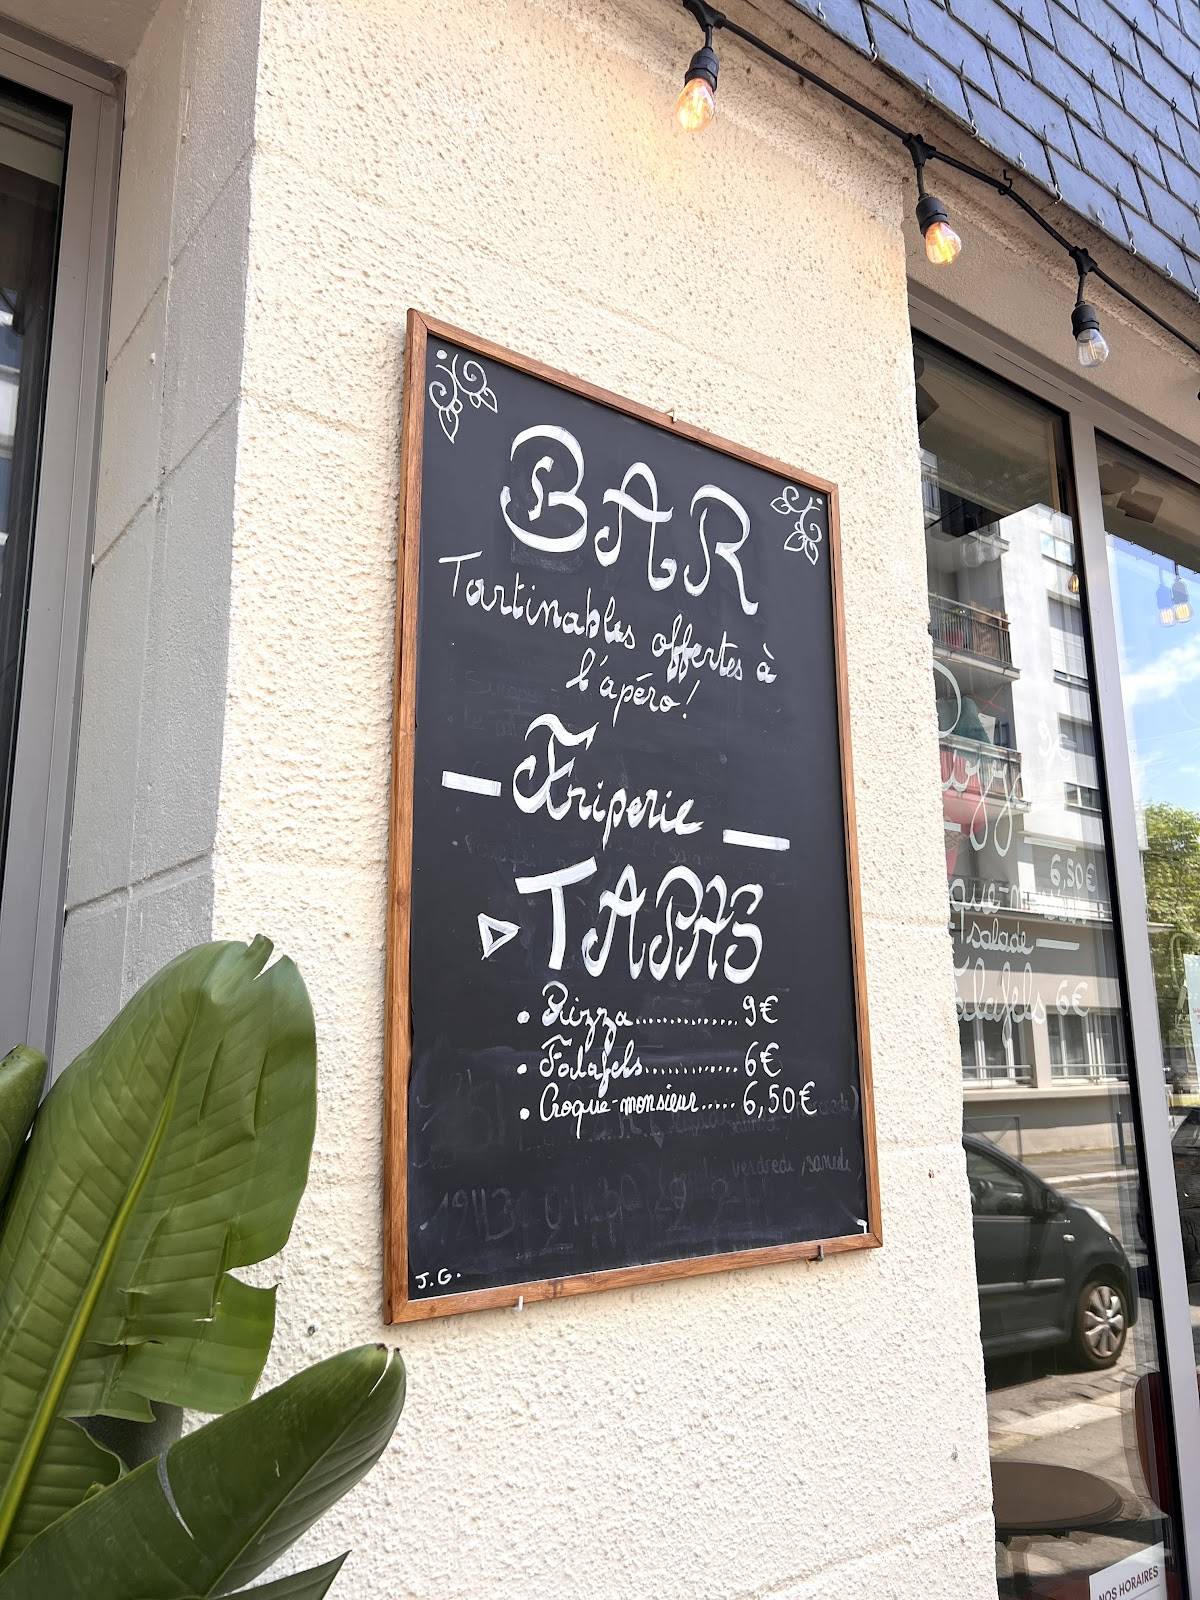 BAR
Tartinables offertes à
l'apéro!
Friperie
TAPAS
• Pizza.............. 9€
• Falafels............ 6€
• Croque-monsieur..... 6,50€
vendredi, samedi
J.G.
Pizza 9€
6,50€
salade
Falafels 6€
NOS HORAIRES